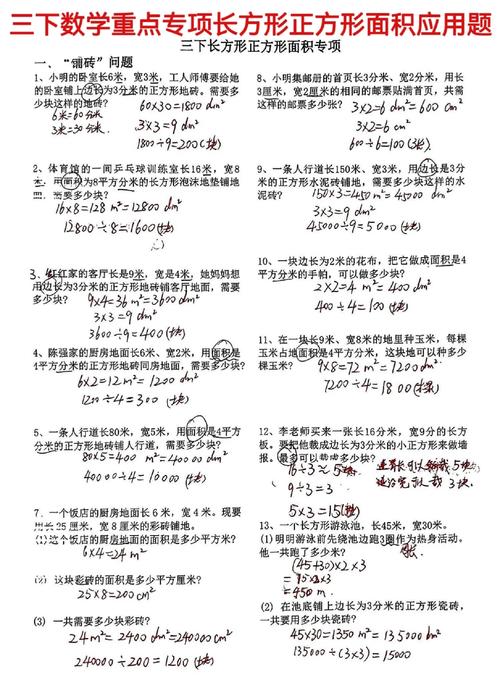 三下数学重点专项长方形正方形面积应用题
三下长方形正方形面积专项
一、“铺砖”问题
1、小明的卧室长6米，宽3米，工人师傅要给她
的卧室铺上边长为3分米的正方形地砖。需要多
少块这样的地砖？
6米=60分米
3米=30分米
60×30=1800 dm²
3×3=9 dm²
1800÷9=200(块)
2、体育馆的一间乒乓球训练室长16米，宽8
米，用面积为8平方分米的长方形泡沫地垫铺地
面，需要多少块？
16×8=128 m²=12800 dm²
12800÷8=1600(块)
3、红红家的客厅长是9米，宽是4米，她妈妈想
用边长为3分米的正方形地砖铺客厅地面，需要
多少块？
9×4=36 m²=3600 dm²
3×3=9 dm²
3600÷9=400(块)
4、陈强家的厨房地面长6米、宽2米，用面积是
4平方分米的正方形地砖铺厨房地面，需要多少块？
6×2=12 m²=1200 dm²
1200÷4=300(块)
5、一条人行道长80米，宽5米，用面积是4平方
分米的正方形地砖铺人行道，需要多少块？
80×5=400 m²=40000 dm²
40000÷4=10000(块)
7、一个饭店的厨房地面长6米，宽4米。现要
用长25厘米，宽8厘米的彩砖铺地。
(1)这个饭店的厨房地面的面积是多少平方米？
6×4=24 m²
(2) 这块彩砖的面积是多少平方厘米？
25×8=200 cm²
(3) 一共需要多少块彩砖？
24m²=2400 dm²=240000 cm²
240000÷200=1200(块)
8、小明集邮册的首页长3分米、宽2分米，用长
3厘米，宽2厘米的相同的邮票贴满首页，共需
这样的邮票多少张？
3×2=6 dm²=600 cm²
3×2=6 cm²
600÷6=100(块)
9、一条人行道长150米、宽3米，用边长是3分
米的正方形水泥砖铺地，需要多少块这样的水
泥砖？
150×3=450 m²=45000 dm²
3×3=9 dm²
45000÷9=5000(块)
10、一块边长为2米的花布，把它做成面积是4
平方分米的手帕，可以做多少块？
2×2=4 m²=400 dm²
400÷4=100(块)
11、在一块长9米、宽8米的地里种玉米，每棵
玉米占地面积是4平方分米，这块地可以种多少
棵玉米？
9×8=72 m²=7200 dm²
7200÷4=1800(棵)
12、李老师买来一张长16分米，宽9分米的长方
板。要把他裁成边长为3分米的小正方形来做墙
报。最多可以裁成多少块？
16÷3≈5块
9÷3=3
5×3=15(块)
13、一个长方形游泳池，长45米，宽30米。
(1)明明游泳前先绕池边跑3圈作为热身活动。
他一共跑了多少米？
周长
(45+30)×2×3
=75×2×3
=450m
(2) 在池底铺上边长为3分米的正方形瓷砖，
一共要用多少块瓷砖？
45×30=1350 m²=135000 dm²
135000÷(3×3)=15000